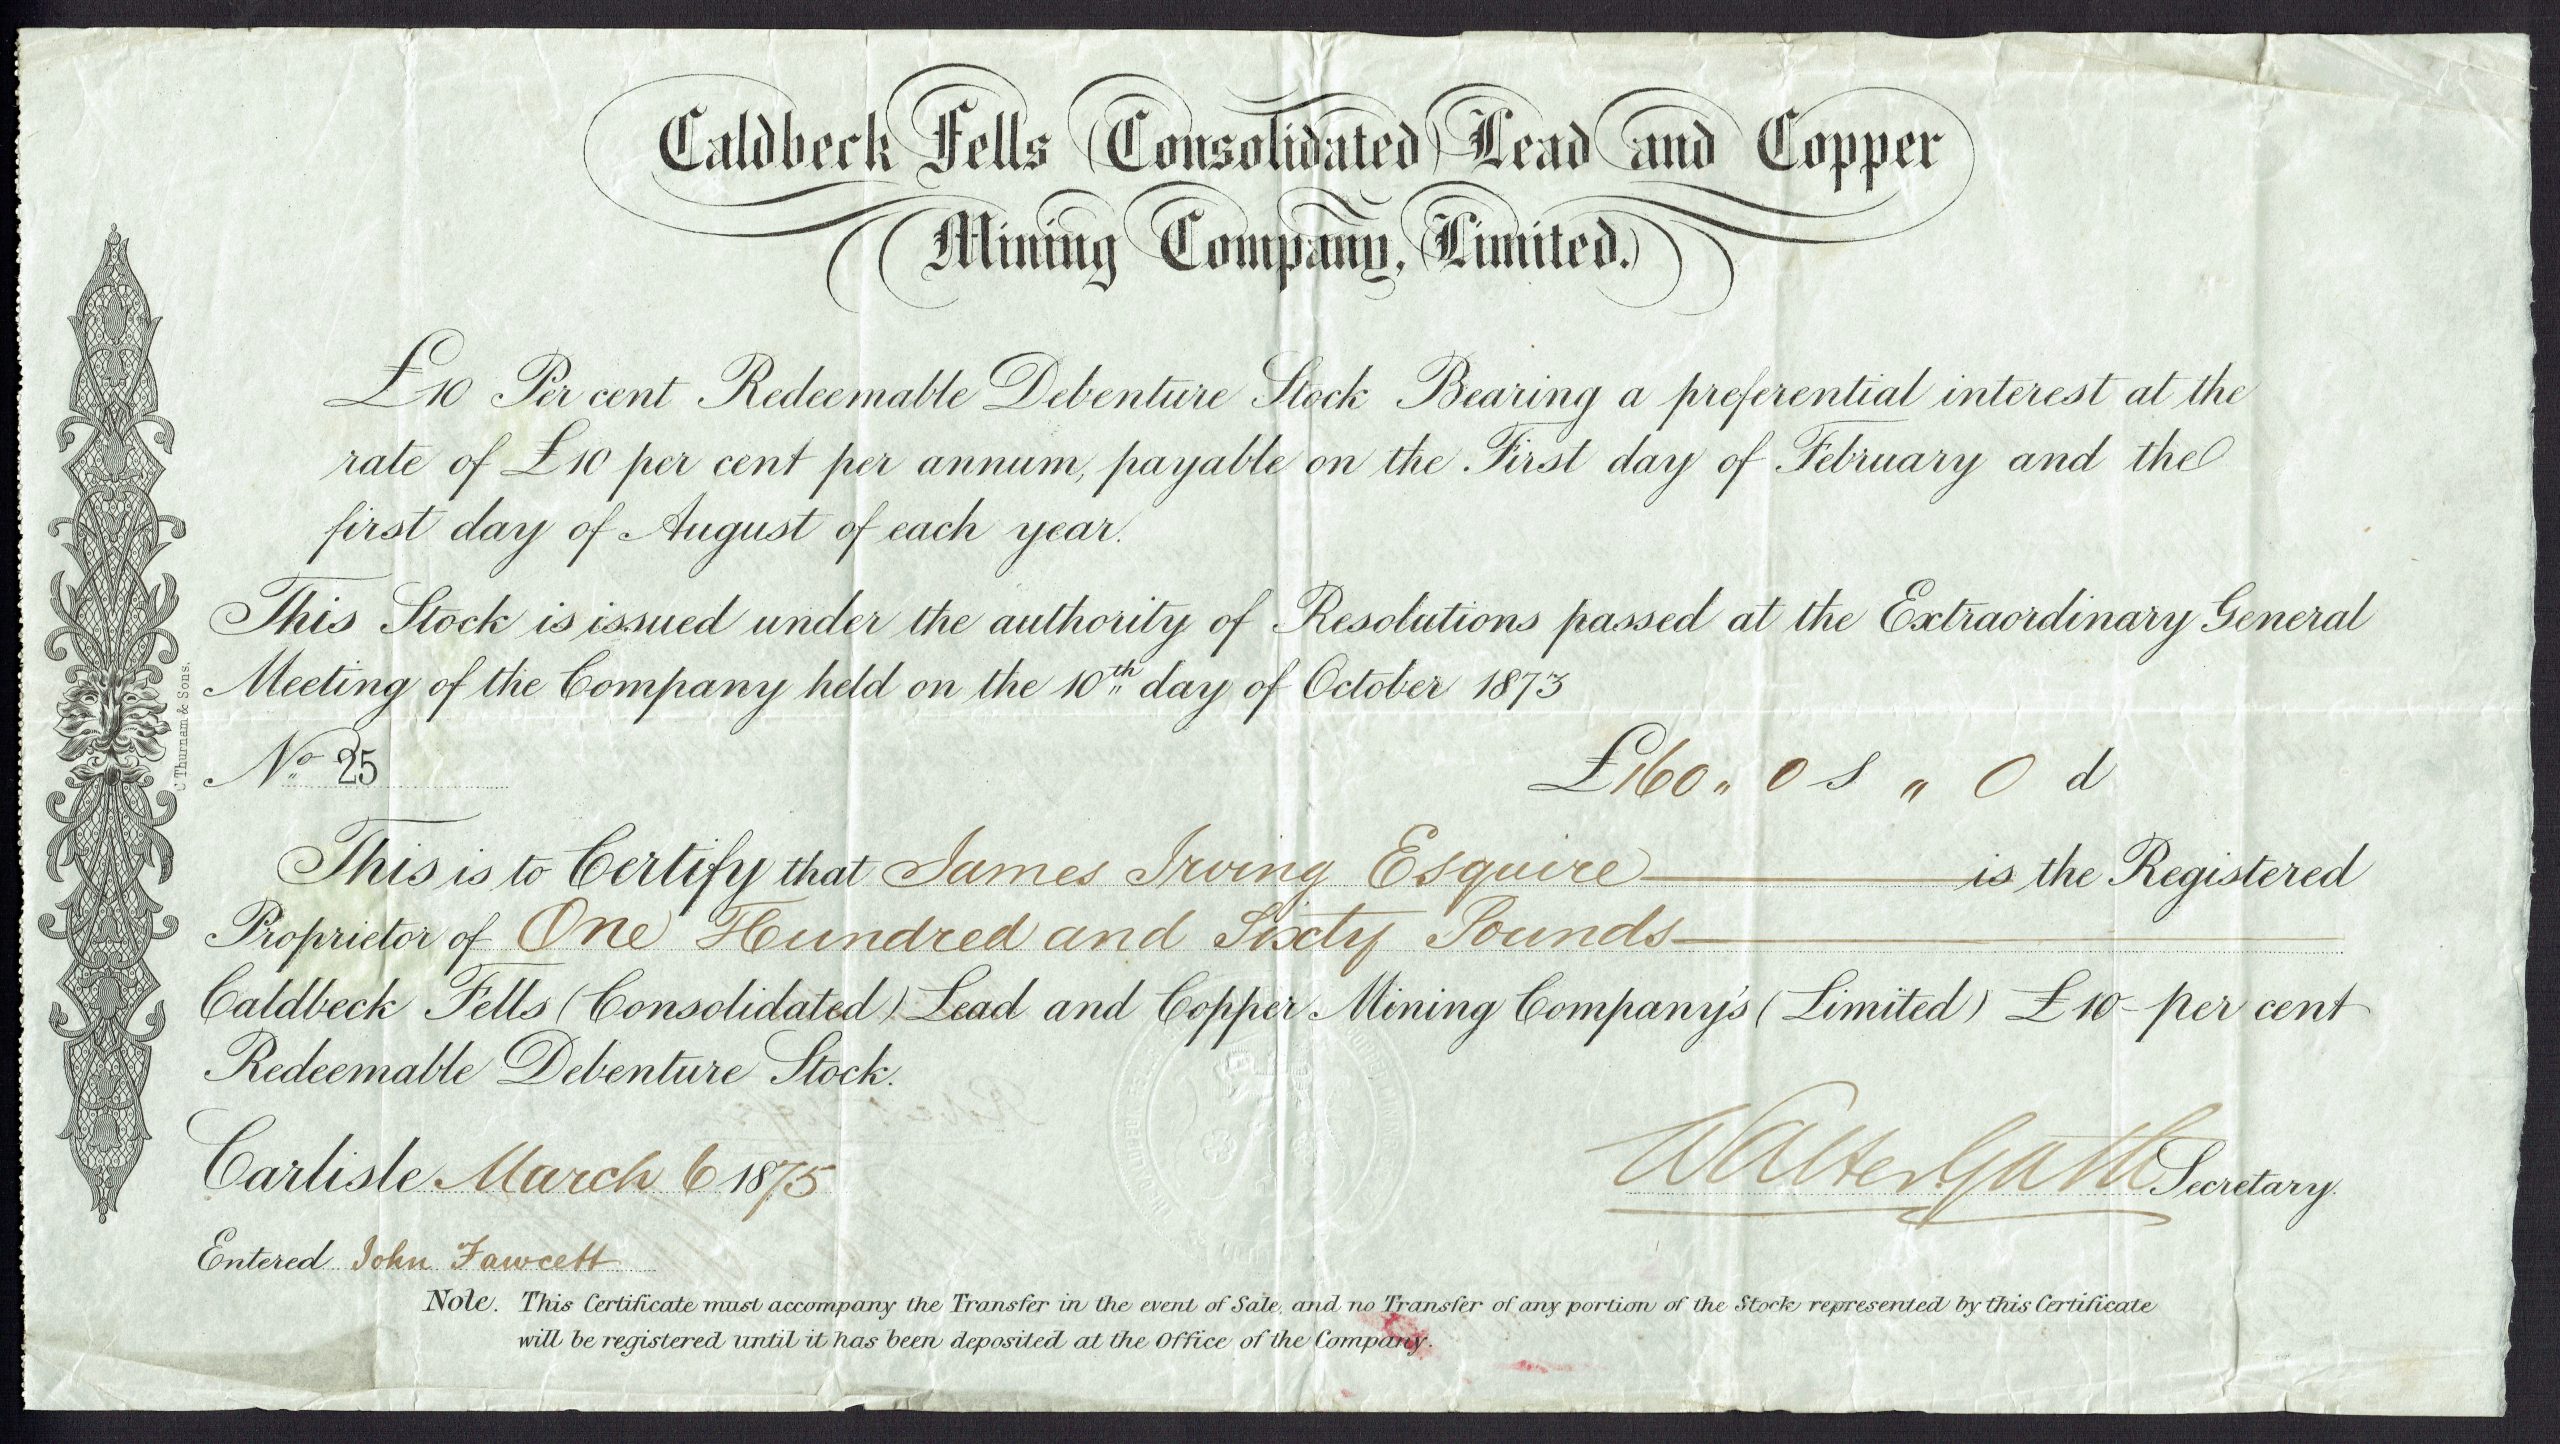 Caldbeck Fells (Consolidated) Lead and Copper
Mining Company, (Limited.)
£10 Per cent Redeemable Debenture Stock Bearing a preferential interest at the
rate of £10 per cent per annum, payable on the First day of February and the
first day of August of each year.
This Stock is issued under the authority of Resolutions passed at the Extraordinary General
Meeting of the Company held on the 10th day of October 1873
No 25
£160 " 0 s " 0 d
This is to Certify that James Irving Esquire is the Registered
Proprietor of One Hundred and Sixty Pounds
Caldbeck Fells (Consolidated) Lead and Copper Mining Company's (Limited) £10 - per cent
Redeemable Debenture Stock.
Carlisle March 6 1875
Walter Secretary.
Entered John Fawcett
Note. This Certificate must accompany the Transfer in the event of Sale, and no Transfer of any portion of the Stock represented by this Certificate
will be registered until it has been deposited at the Office of the Company.
C Thurnam & Sons.